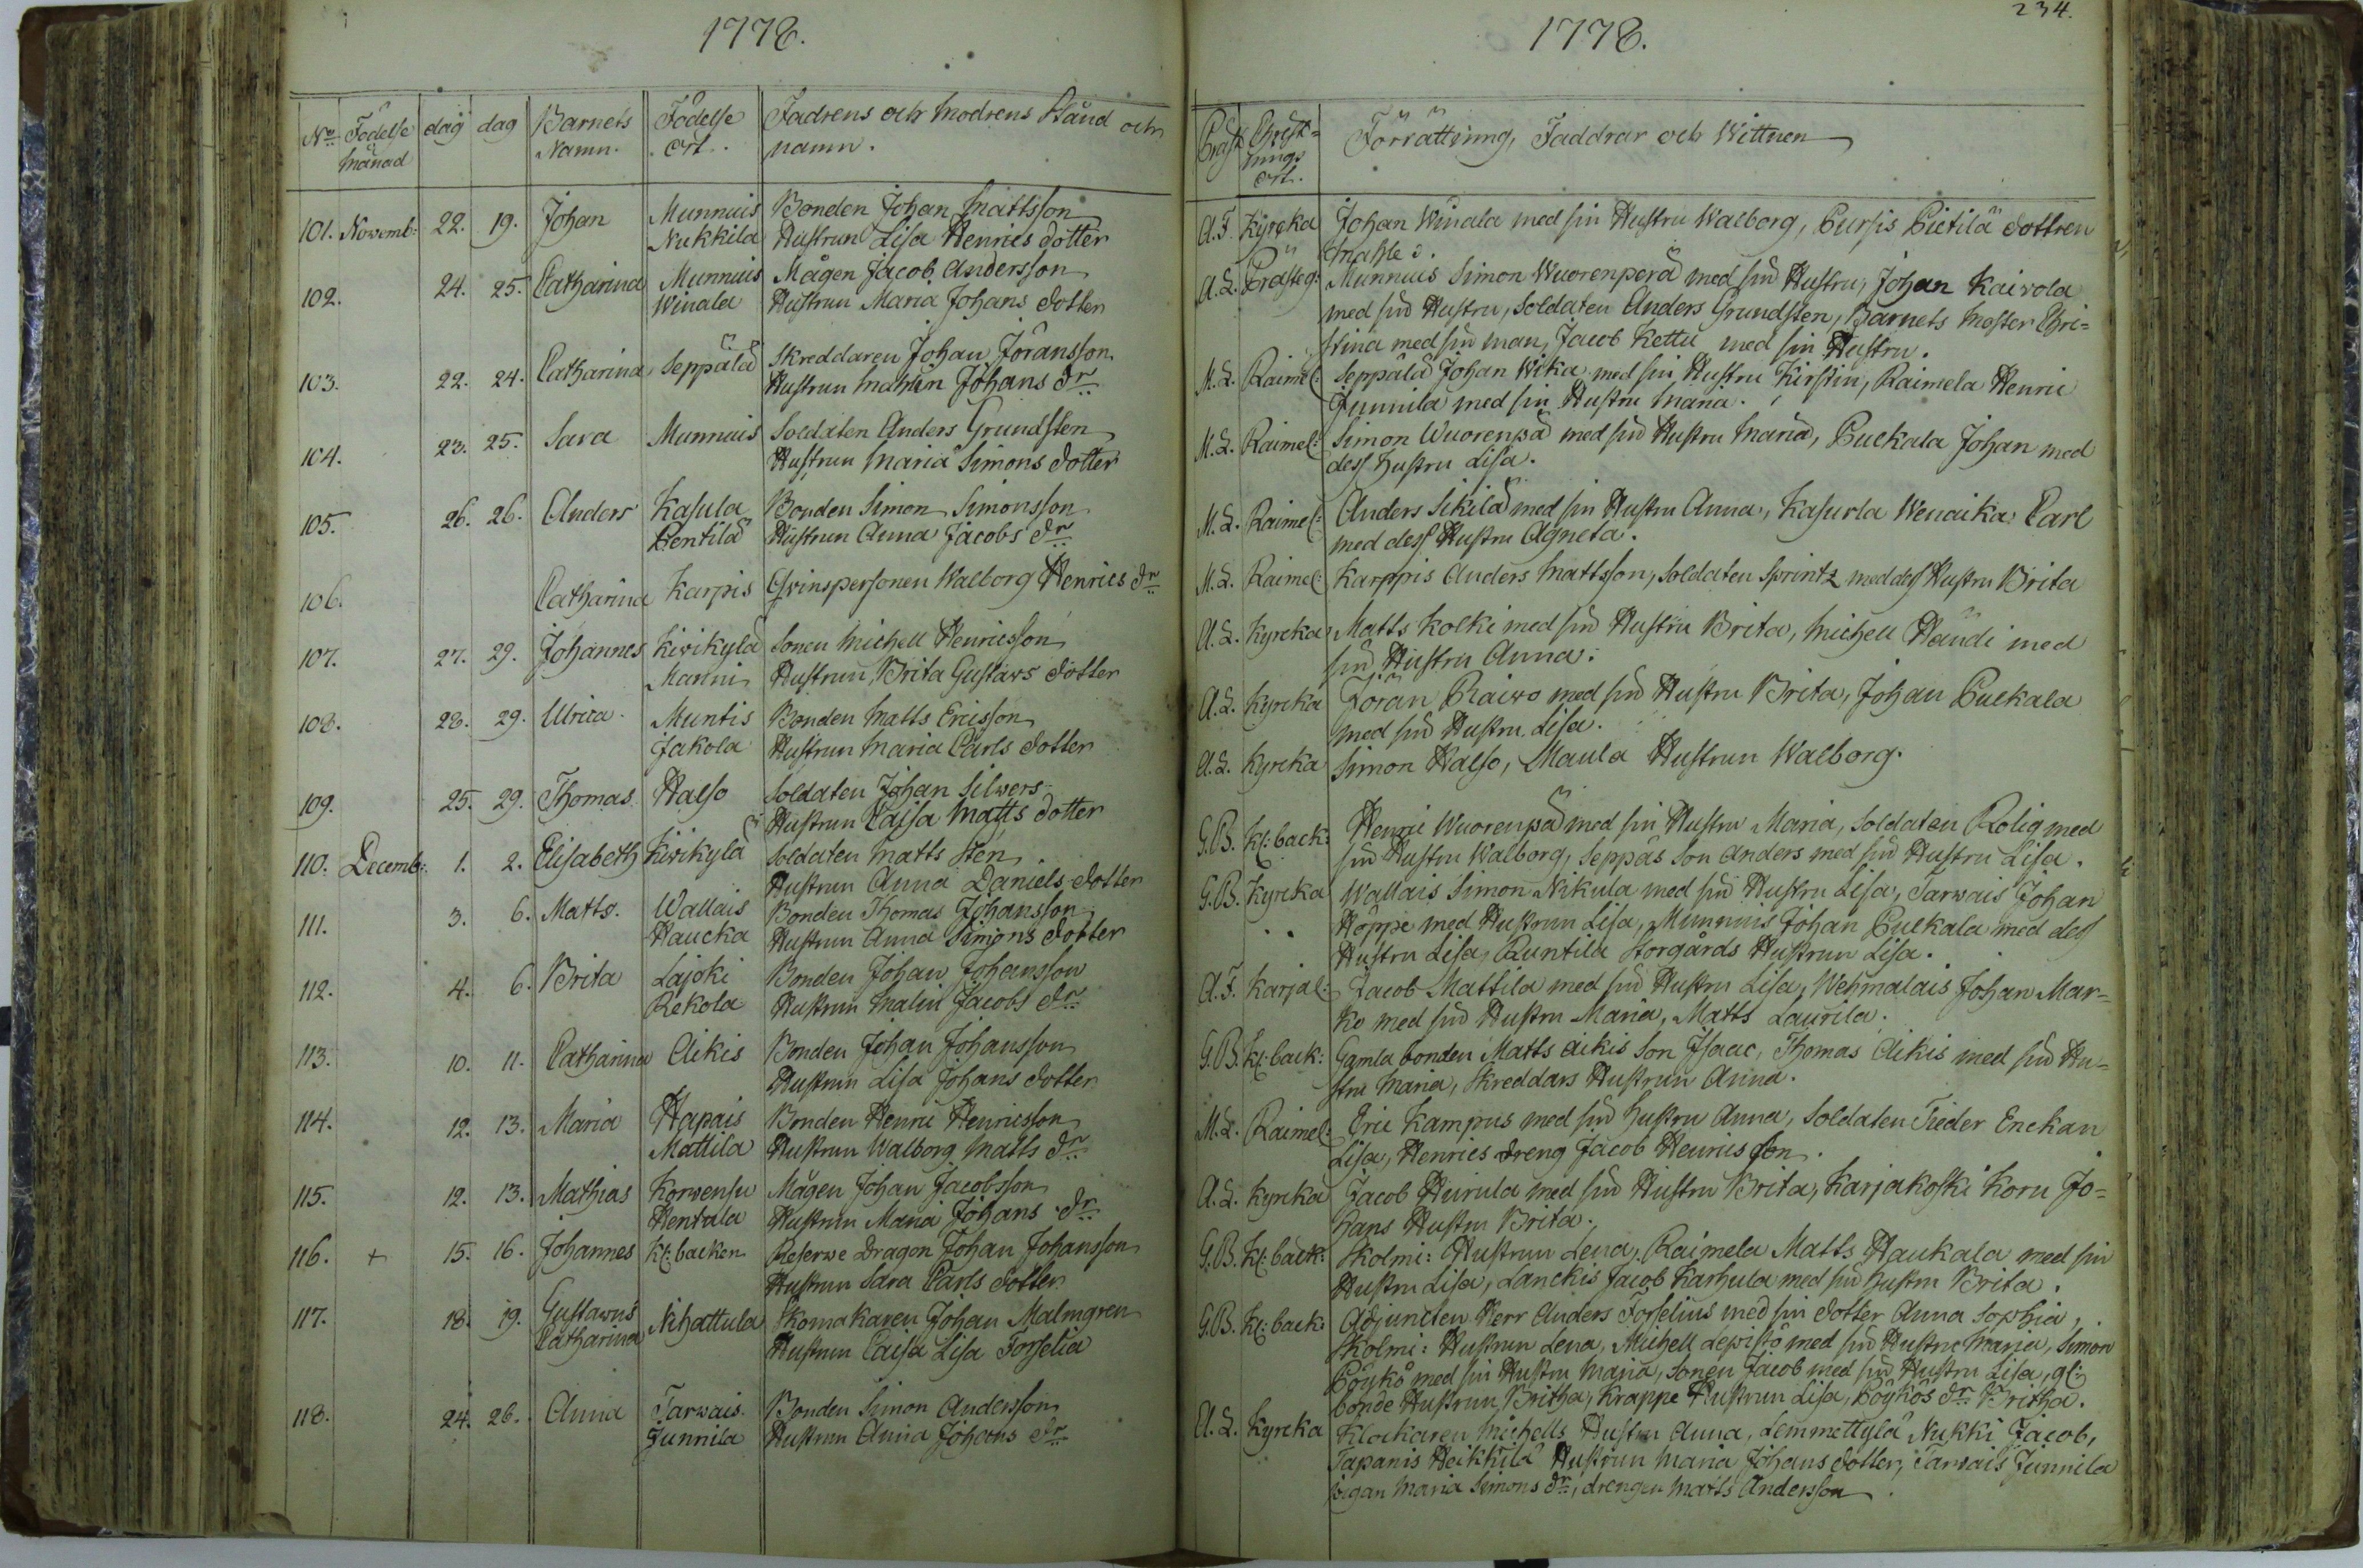 1778.
No Födelse dag dag Barnets Födelse Fadrens och Modrens Stånd och
månad Namn. ort. namn.
101. Novemb: 22. 19. Johan Munnuis Bonden Johan Mattsson
Nukkila Hustrun Lisa Henrics dotter
102. 24. 25. Catharina Munnuis Mågen Jacob Andersson
Winala Hustrun Maria Johans dotter
103. 22. 24. Catharina Seppälä Skreddaren Johan Jöransson
Hustrun Malin Johans dr
104. 23. 25. Sara Munnuis Soldaten Anders Grundsten
Hustrun Maria Simons dotter
105. 26. 26. Anders Kasula Bonden Simon Simonsson
Pentilä Hustrun Anna Jacobs dr
106. Catharina Karpis Qvinspersonen Walborg Henrics dr
107. 27. 29. Johannes Kivikylä Sonen Michell Henricsson
Manni Hustrun Brita Gustavs dotter
108. 28. 29. Ulrica Muntis Bonden Matts Ericsson
Jakola Hustrun Maria Carls dotter
109. 25. 29. Thomas Halso Soldaten Johan Silwers
Hustrun Caisa Matts dotter
110. Decemb: 1. 2. Elisabeth Kivikylä Soldaten Matts Sten
Hustrun Anna Daniels dotter
111. 3. 6. Matts. Wallais Bonden Thomas Johansson
Haucka Hustrun Anna Simons dotter
112. 4. 6. Brita Lajoki Bonden Johan Johansson
Rekola Hustrun Malin Jacobs dr
113. 10. 11. Catharina Aikis Bonden Johan Johansson
Hustrun Lisa Johans dotter
114. 12. 13. Maria Hapais Bonden Henric Henricsson
Mattila Hustrun Walborg Matts dr
115. 12. 13. Mathias Korwensu Mågen Johan Jacobsson
Hentula Hustrun Maria Johans dr
116. + 15. 16. Johannes Kl: backen Reserwe Dragon Johan Johansson
Hustrun Sara Carls dotter
117. 18. 19. Gustavus Nihattula Skomakaren Johan Malmgren
Catharina Hustrun Caisa Lisa Forselia
118. 24. 26. Anna Tarvais Bonden Simon Andersson
Junnila Hustrun Anna Johans dr
234.
1778.
Præst Christ= Förrättning, Faddrar och Wittnen
nings
ort.
A.F. Kyrcka Johan Winala med sin Hustru Walborg, Pursis Pietilä dottren
A.L. Prästeg: Munnuis Simon Wuorenperä med sin Hustru, Johan Kaivola
med sin Hustru, Soldaten Anders Grundsten, Barnets Moster Chri=
stina med sin man, Jacob Kettu med sin Hustru.
M.L. Raimel: Seppälä Johan Wika med sin Hustru Kirstin, Raimela Henric
Junnila med sin Hustru Maria.
M.L. Raimel: Simon Wuorenpä med sin Hustru Maria, Puckala Johan med
dess hustru Lisa.
M.L. Raimel: Anders Sikilä med sin Hustru Anna, Kasurla Wenaika Carl
med dess Hustru Agneta.
M.L. Raimel: Karppis Anders Mattsson, Soldaten Sprintz med dess Hustru Brita
A.L. Kyrcka Matts Kolki med sin Hustru Brita, Michell Händi med
sin Hustru Anna.
A.L. Kyrcka Jöran Raivo med sin Hustru Brita, Johan Puckala
med sin Hustru Lisa.
A.L. Kyrcka Simon Halso, Maula Hustrun Walborg.
G.B. Kl: back: Henric Wuorenpä med sin Hustru Maria, Soldaten Rolig med
sin Hustru Walborg, Seppäs Son Anders med sin Hustru Lisa.
G.B. Kyrcka Wallais Simon Nikula med sin Hustru Lisa, Tarvais Johan
Höppe med Hustrun Lisa, Munnuis Johan Puckala med dess
Hustru Lisa, Runtila Storgårds Hustrun Lisa.
A.F. Karjal: Jacob Mattila med sin Hustru Lisa, Wehmalais Johan Mar=
ko med sin Hustru Maria, Matts Laurila.
G.B. Kl: back: Gamla bonden Matts Aikis Son Isaac, Thomas Aikis med sin Hu=
stru Maria, Skreddars Hustrun Anna.
M.L. Raimel: Eric Kampus med sin hustru Anna, Soldaten Enckan
Lisa, Henrics dreng Jacob Henricsson.
A.L. Kyrcka Jacob Hurula med sin Hustru Brita, Karjakoski Koru Jo=
hans Hustru Brita.
G.B. Kl: back: Skolmi: Hustrun Lena, Raimela Matts Haukala med sin
Hustru Lisa, Lanckis Jacob Karhula med sin hustru Brita.
G.B. Kl: back: Adjuncten Herr Anders Forselius med sin dotter Anna Sophia,
Skolmi: Hustrun Lena, Michell Lepistö med sin Hustru Maria, Simon
Pöykö med sin Hustru Maria, Sonen Jacob med sin Hustru Lisa, gl:
bonde Hustrun Britha, Krappe Hustrun Lisa, Pöykös dr Britha.
A.L. Kyrcka Klockaren Michells Hustru Anna, Lemmettylä Nukki Jacob,
Sapanis Heikkilä Hustrun Maria Johans dotter, Tarvais Junnila
pigan Maria Simons dr, drengen Matts Andersson